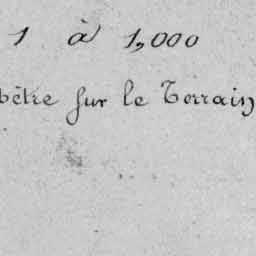 1 à 1,000
sur le Terrain